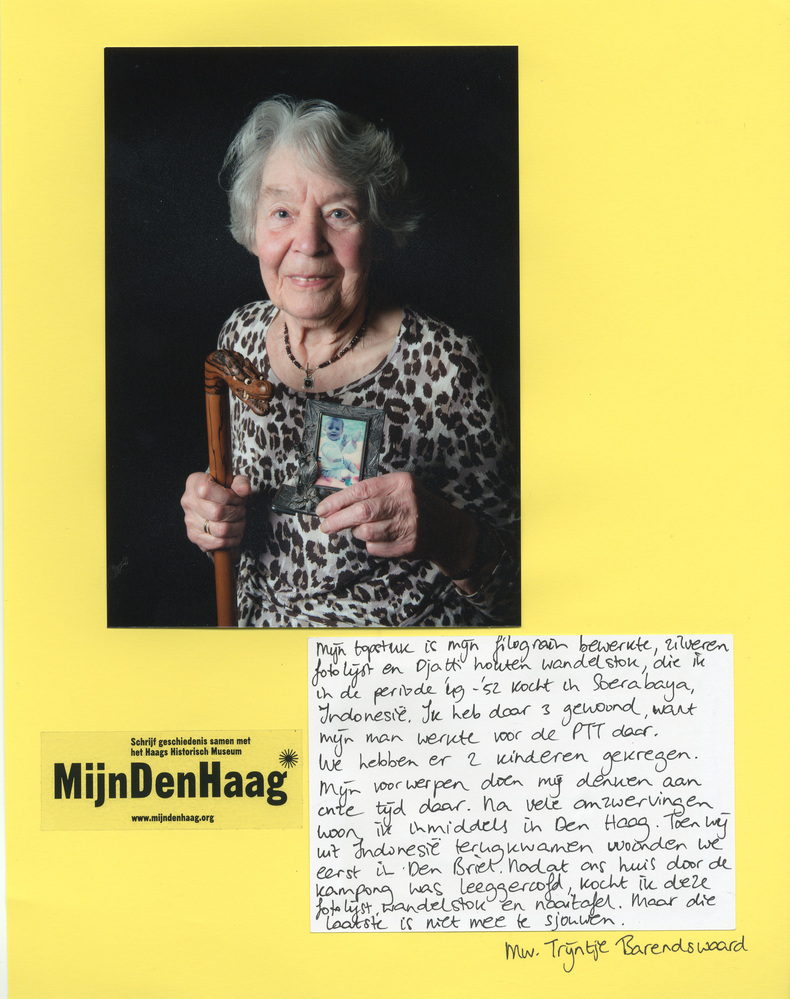 Mijn topstuk is mijn filograin bewerkte, zilveren
fotolijst en Djatti houten wandelstok, die ik
in de periode '49-'52 kocht in Soerabaya,
Indonesië. Ik heb daar 3 gewoond, want
mijn man werkte voor de PTT daar.
We hebben er 2 kinderen gekregen.
Mijn voorwerpen doen mij denken aan
onze tijd daar. Na vele omzwervingen
woon ik inmiddels in Den Haag. Toen wij
uit Indonesië terugkwamen woonden we
eerst in Den Briel. Nadat ons huis door de
kampong was leeggeroofd, kocht ik deze
fotolijst, wandelstok en naaitafel. Maar die
laatste is niet mee te sjouwen.
Mw. Trijntje Barendswaard
Schrijf geschiedenis samen met
het Haags Historisch Museum
MijnDenHaag
www.mijndenhaag.org